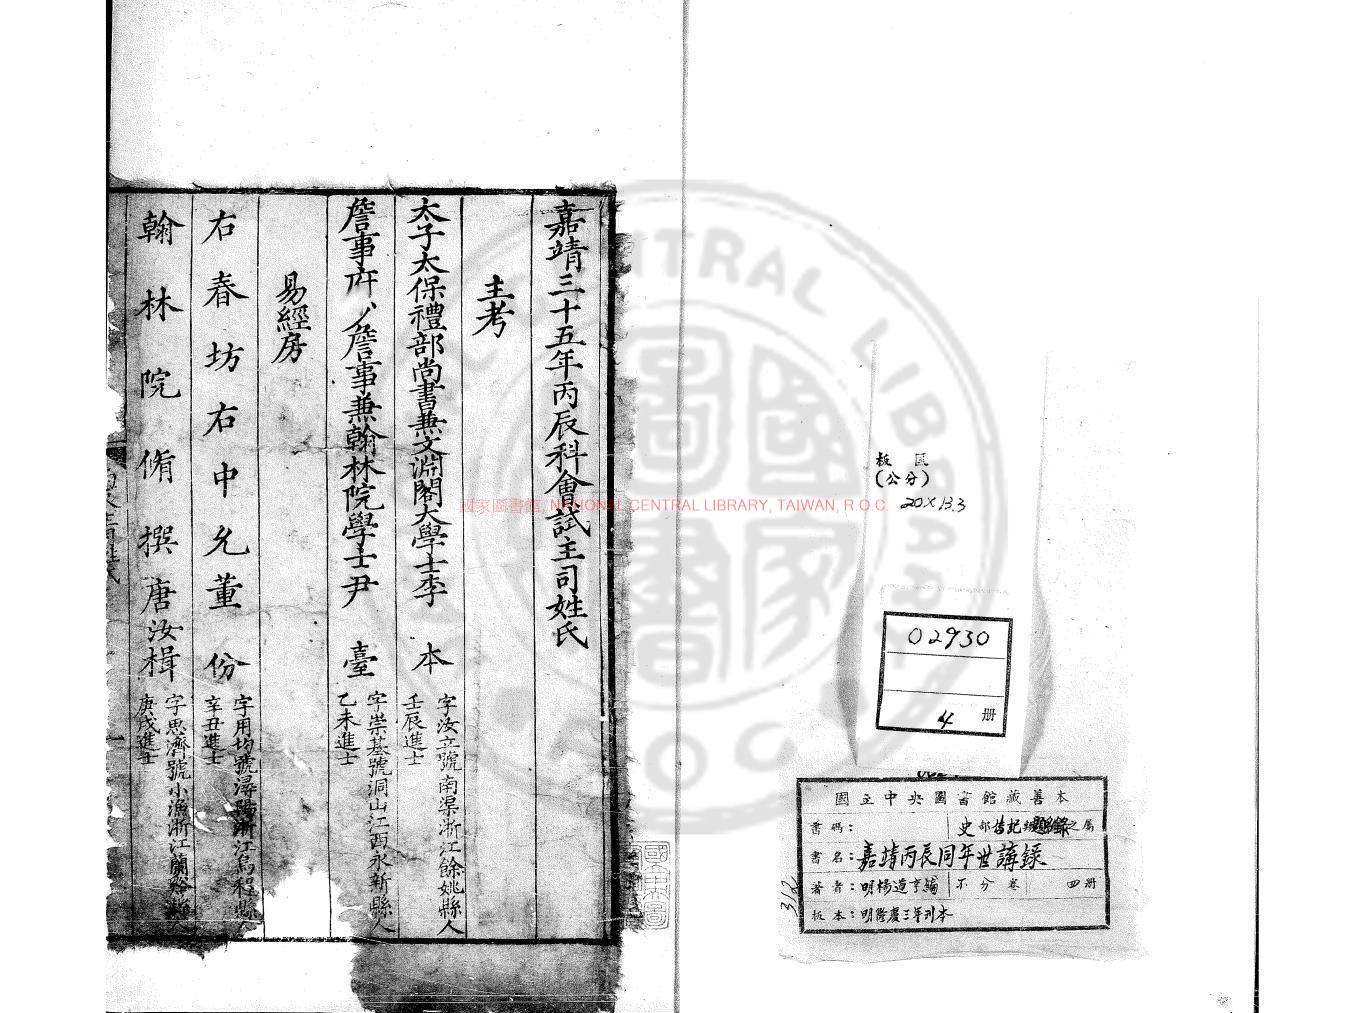 嘉靖三十五年丙辰科會試主司姓氏
主考
太子太保禮部尚書兼文淵閣大學士李 本 字汝立號南渠浙江餘姚縣人
壬辰進士
詹事府少詹事兼翰林院學士尹 臺 字崇基號洞山江西永新縣人
乙未進士
易經房
右春坊右中允董 份 字用均號潯陽浙江烏程縣人
辛丑進士
翰林院脩撰唐汝楫 字思濟號小漁浙江蘭谿縣人
庚戌進士
國家圖書館, NATIONAL CENTRAL LIBRARY, TAIWAN, R.O.C.
板匡
(公分)
20×13.3
02930
4 册
國立中央圖書館藏善本
書碼： 史部傳記類題名錄之屬
書名：嘉靖丙辰同年世講錄
著者：明楊道亨編 不分卷 四册
板本：明隆慶三年刊本
312